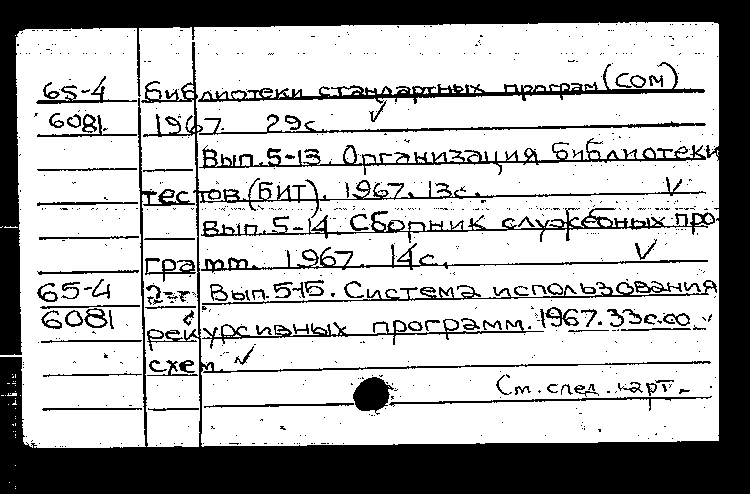 65-4 библиотеки стандартных програм (СОМ)
6081 1967. 29с. ✓
Вып.5-13. Организация библиотеки
тестов.(БИТ). 1967. 13с. ✓
Вып.5-14. Сборник служебных про-
грамм. 1967. 14с. ✓
65-4 2-т Вып.5-15. Система использования
6081 рекурсивных программ. 1967. 33с. со ✓
схем. ✓
См. след. карт.